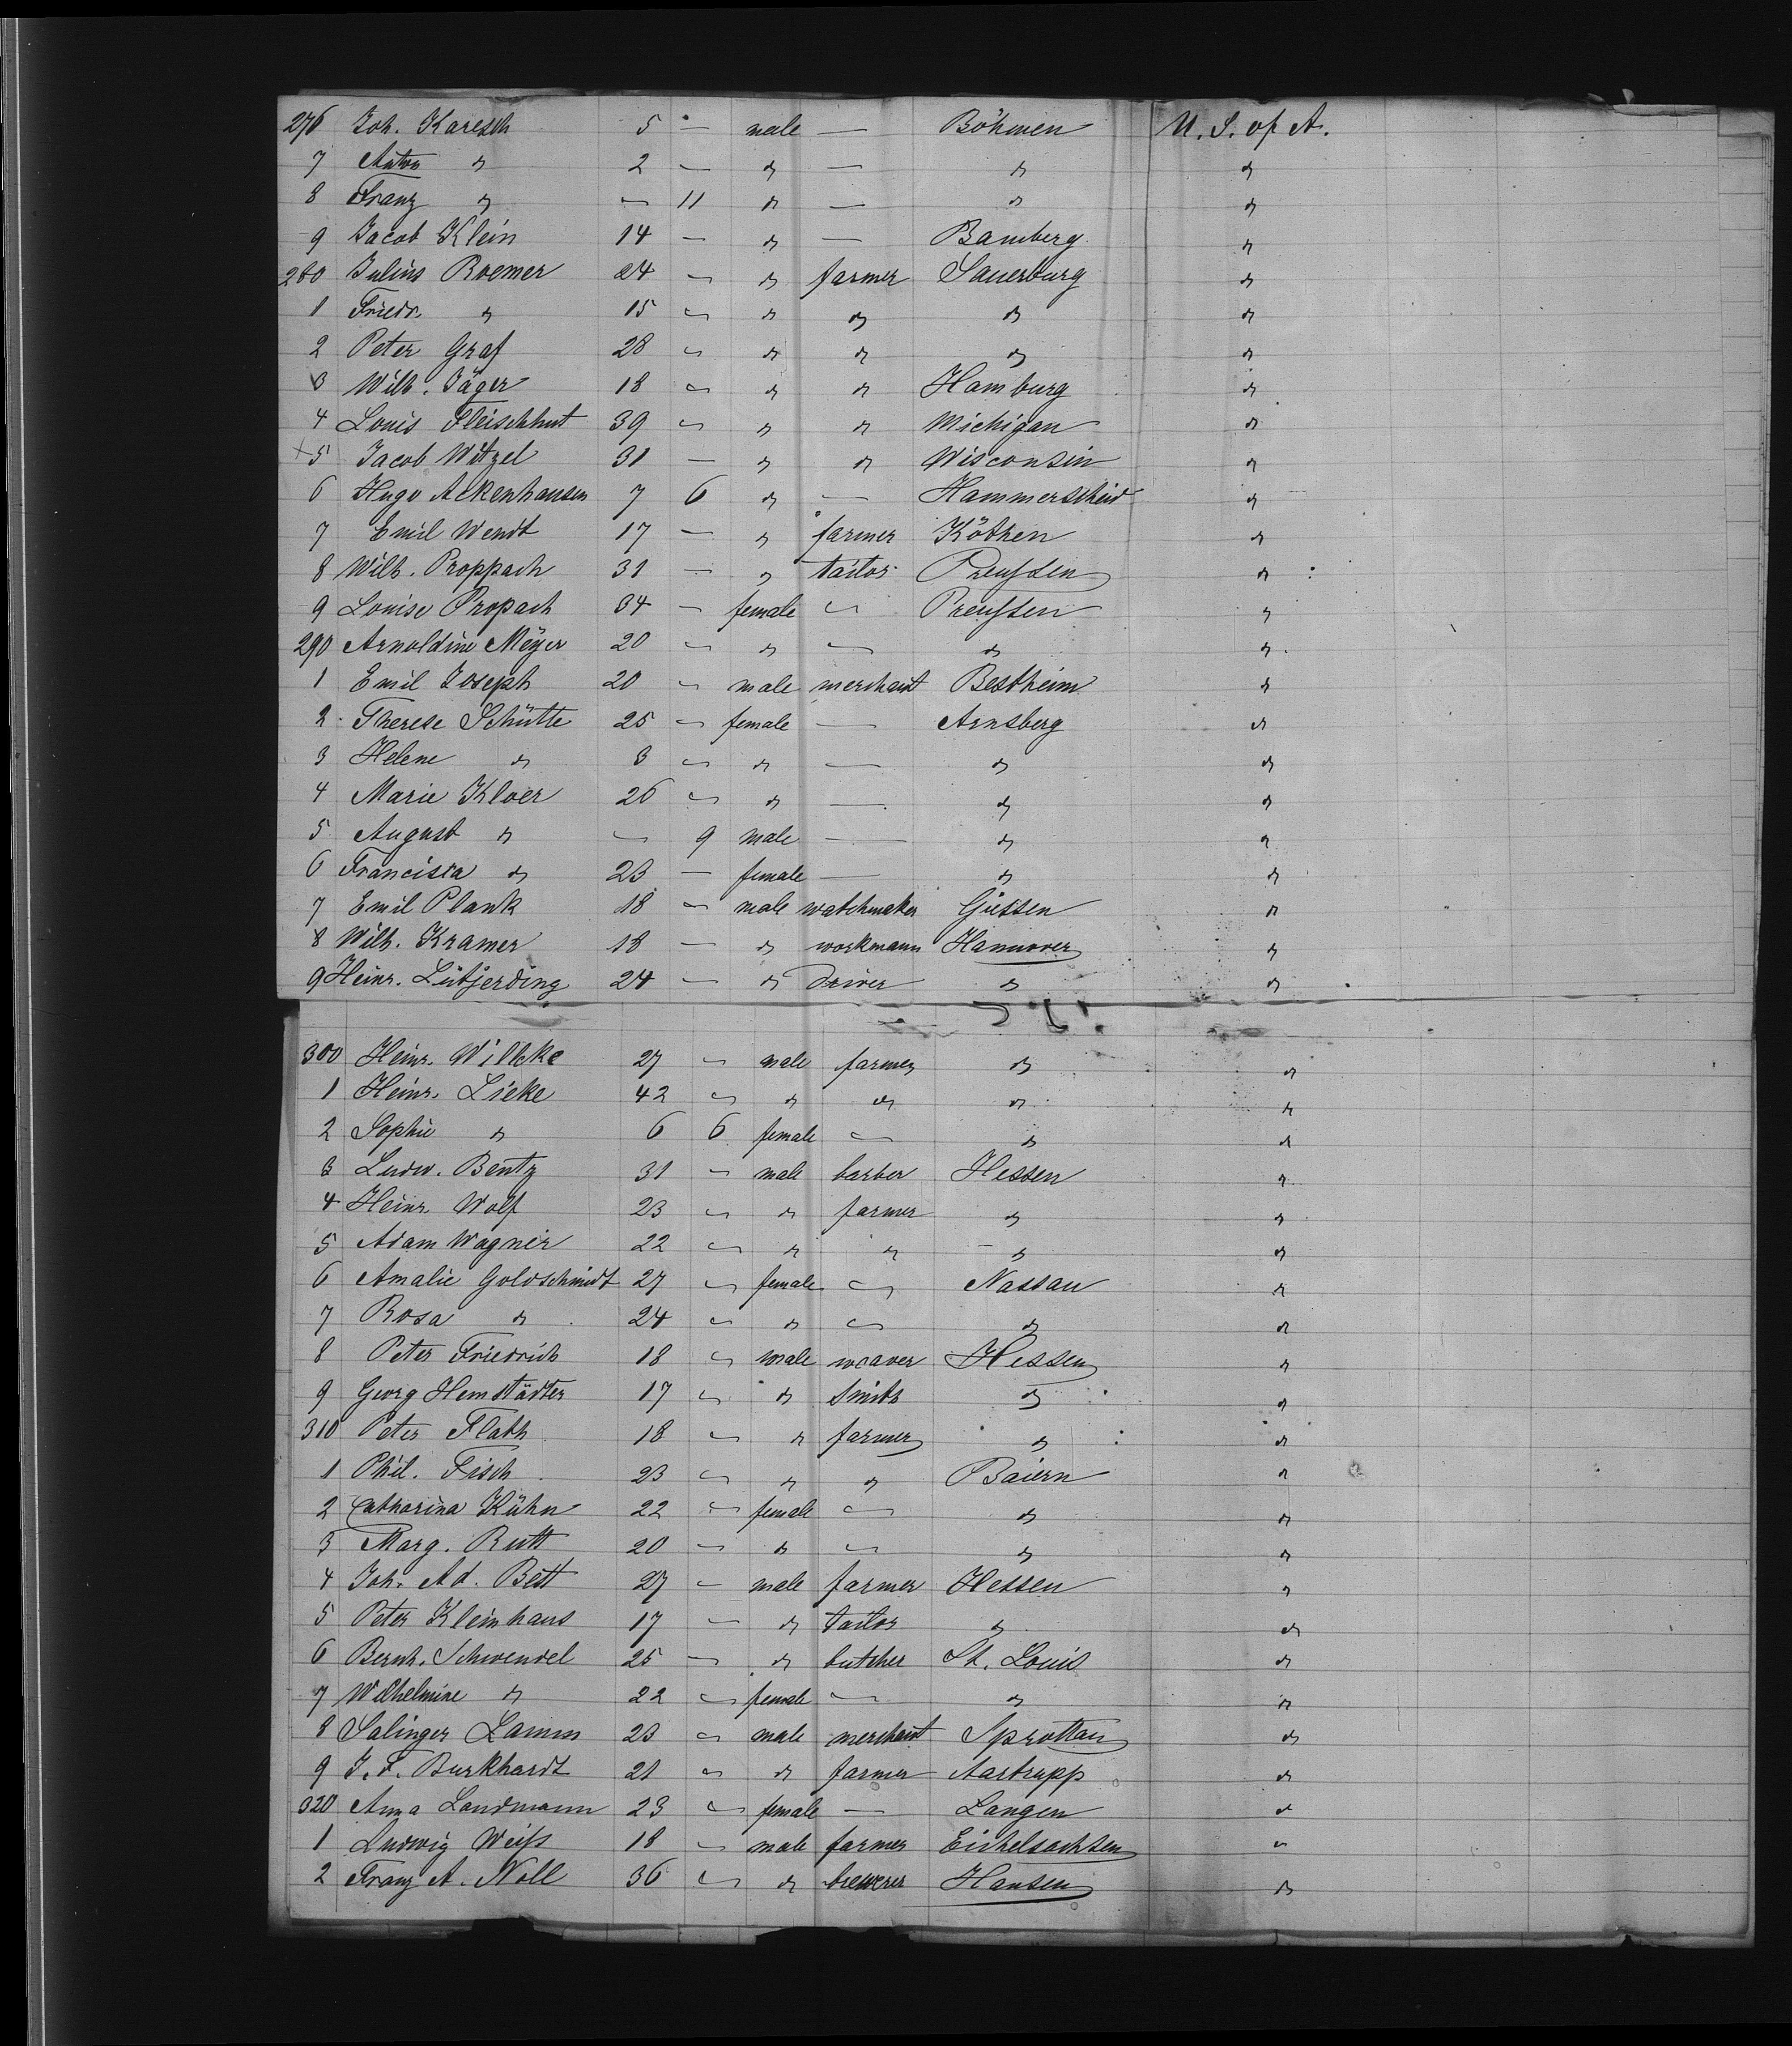 276 Joh. Karesch 5 — male — Böhmen U. S. of A.
7 Anton " 2 — " — " "
8 Franz " — 11 " — " "
9 Jacob Klein 14 — " — Bamberg "
280 Julius Roemer 24 — " farmer Sauerburg "
1 Friedr. " 15 — " " " "
2 Peter Graf 28 — " " " "
3 Wilh. Jäger 18 — " " Hamburg "
4 Louis Fleischhut 39 — " " Michigan "
5 Jacob Witzel 31 — " " Wisconsin "
6 Hugo Ackenhausen 7 6 " — Hammerscheid "
7 Emil Wendt 17 — " farmer Köthen "
8 Wilh. Proppach 31 — " tailor Preußen "
9 Louise Propach 34 — female — Preußen "
290 Arnoldine Meÿer 20 — " — " "
1 Emil Joseph 20 — male merchant Bestheim "
2 Therese Schütte 25 — female — Arnsberg "
3 Helene " 3 — " — " "
4 Marie Kloer 26 — " — " "
5 August " — 9 male — " "
6 Francisca " 23 — female — " "
7 Emil Plank 18 — male watchmaker Giessen "
8 Wilh. Kramer 18 — " workmann Hannover "
9 Heinr. Lütjerding 24 — " driver " "
300 Heinr. Willcke 27 — male farmer " "
1 Heinr. Lieke 42 — " " " "
2 Sophie " 6 6 female — " "
3 Ludw. Bentz 31 — male barber Hessen "
4 Heinr. Wolf 23 — " farmer " "
5 Adam Wagner 22 — " " " "
6 Amalie Goldschmidt 27 — female — Nassau "
7 Rosa " 24 — " — " "
8 Peter Friedrich 18 — male weaver Hessen "
9 Georg Hemstädter 17 — " smith " "
310 Peter Flath 18 — " farmer " "
1 Phil. Fisch 23 — " " Baiern "
2 Catharina Kühn 22 — female — " "
3 Marg. Rutt 20 — " — " "
4 Joh. Ad. Bett 27 — male farmer Hessen "
5 Peter Kleinhaus 17 — " tailor " "
6 Bernh. Schwendel 25 — " butcher St. Louis "
7 Wilhelmine " 22 — female — " "
8 Salinger Lamm 23 — male merchant Sprottau "
9 J. F. Burkhardt 21 — " farmer Aartrupp "
320 Anna Landmann 23 — female — Langen "
1 Ludwig Weiß 18 — male farmer Eichelsachsen "
2 Franz A. Noll 36 — " brewerer Hansen "